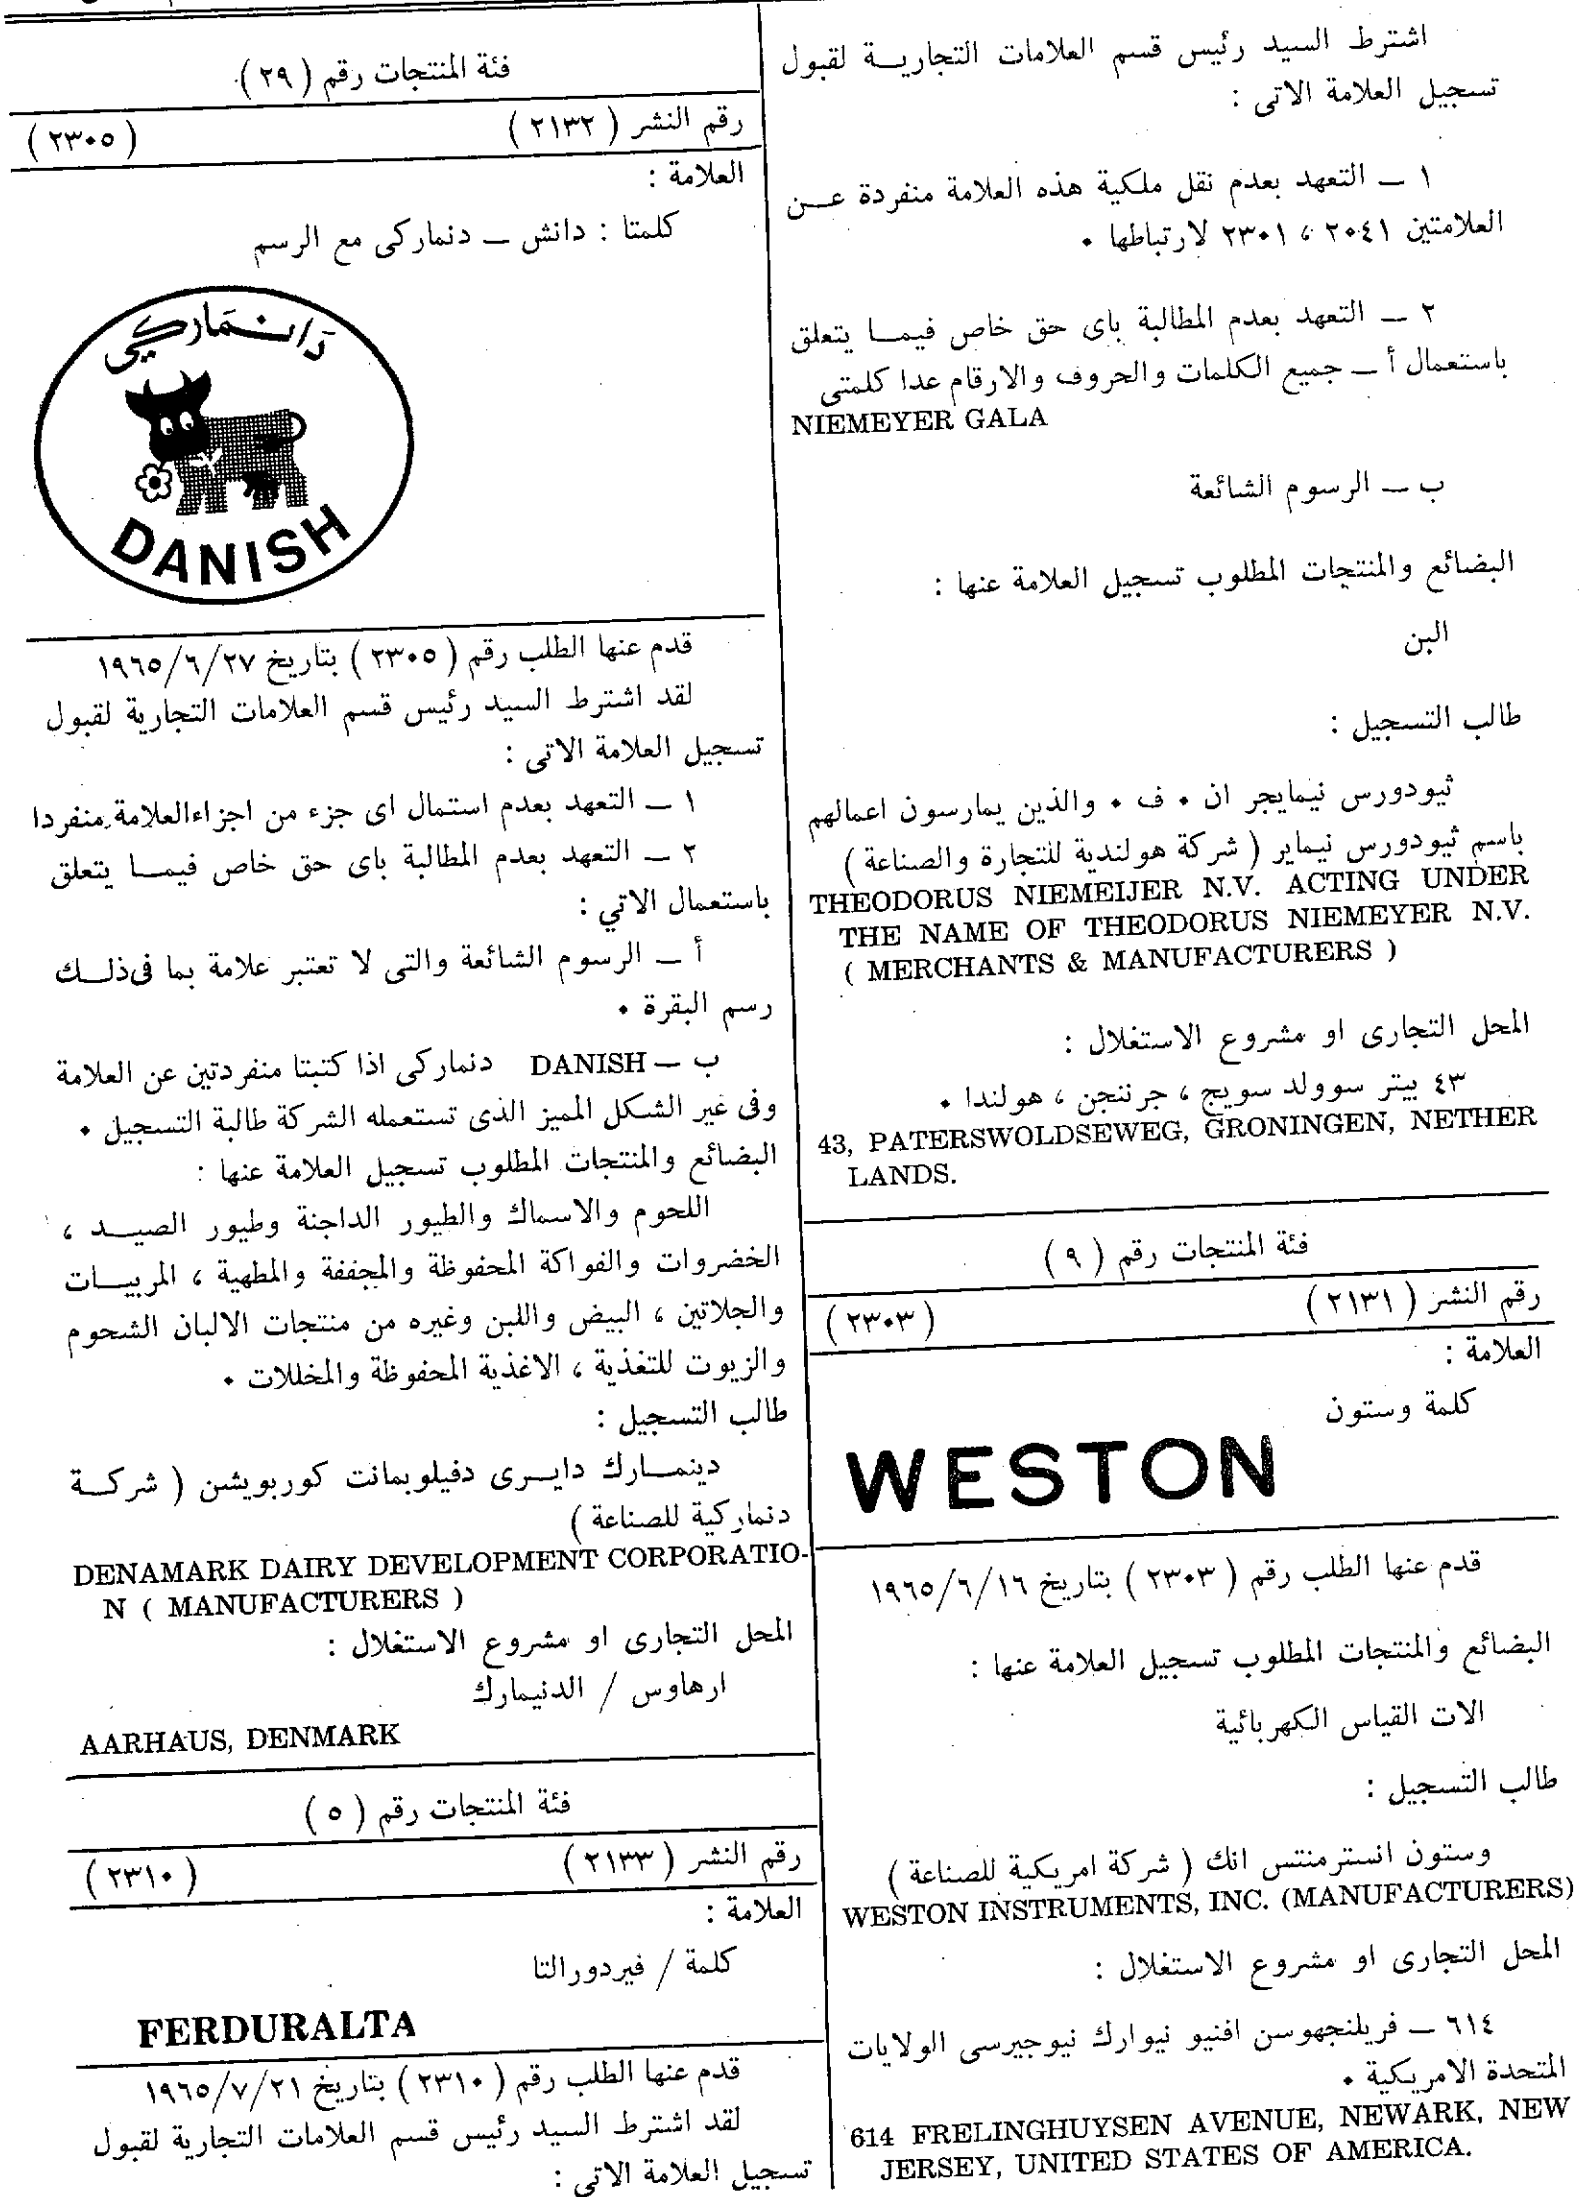 اشترط السيد رئيس قسم العلامات التجاريـــة لقبول
تسجيل العلامة الاتى :
١ ــ التعهد بعدم نقل ملكية هذه العلامة منفردة عـــن
العلامتين ٢٠٤١ ، ٢٣٠١ لارتباطها ٠
٢ ــ التعهد بعدم المطالبة باى حق خاص فيمـــا يتعلق
باستعمال أ ــ جميع الكلمات والحروف والارقام عدا كلمتى
NIEMEYER GALA
ب ــ الرسوم الشائعة
البضائع والمنتجات المطلوب تسجيل العلامة عنها :
البن
طالب التسجيل :
ثيودورس نيمايجر ان ٠ ف ٠ والذين يمارسون اعمالهم
باسم ثيودورس نيماير ( شركة هولندية للتجارة والصناعة )
THEODORUS NIEMEIJER N.V. ACTING UNDER
THE NAME OF THEODORUS NIEMEYER N.V.
( MERCHANTS & MANUFACTURERS )
المحل التجارى او مشروع الاستغلال :
٤٣ بيتر سوولد سويج ، جرننجن ، هولندا ٠
43, PATERSWOLDSEWEG, GRONINGEN, NETHER
LANDS.
فئة المنتجات رقم ( ٩ )
رقم النشر ( ٢١٣١ ) ( ٢٣٠٣ )
العلامة :
كلمة وستون
WESTON
قدم عنها الطلب رقم ( ٢٣٠٣ ) بتاريخ ١٩٦٥/٦/١٦
البضائع والمنتجات المطلوب تسجيل العلامة عنها :
الات القياس الكهربائية
طالب التسجيل :
وستون انسترمنتس انك ( شركة امريكية للصناعة )
WESTON INSTRUMENTS, INC. (MANUFACTURERS)
المحل التجارى او مشروع الاستغلال :
٦١٤ ــ فريلنجهوسن افنيو نيوارك نيوجيرسى الولايات
المتحدة الامريكية ٠
614 FRELINGHUYSEN AVENUE, NEWARK, NEW
JERSEY, UNITED STATES OF AMERICA.
فئة المنتجات رقم ( ٢٩ )
رقم النشر ( ٢١٣٢ ) ( ٢٣٠٥ )
العلامة :
كلمتا : دانش ــ دنماركى مع الرسم
دانمَاركي
DANISH
قدم عنها الطلب رقم ( ٢٣٠٥ ) بتاريخ ١٩٦٥/٦/٢٧
لقد اشترط السيد رئيس قسم العلامات التجارية لقبول
تسجيل العلامة الاتى :
١ ــ التعهد بعدم استمال اى جزء من اجزاءالعلامة منفردا
٢ ــ التعهد بعدم المطالبة باى حق خاص فيمـــا يتعلق
باستعمال الاتي :
أ ــ الرسوم الشائعة والتى لا تعتبر علامة بما فىذلــك
رسم البقرة ٠
ب ــ DANISH دنماركى اذا كتبتا منفردتين عن العلامة
وفى غير الشكل المميز الذى تستعمله الشركة طالبة التسجيل ٠
البضائع والمنتجات المطلوب تسجيل العلامة عنها :
اللحوم والاسماك والطيور الداجنة وطيور الصيـــد ،
الخضروات والفواكة المحفوظة والمجففة والمطهية ، المربيـــات
والجلاتين ، البيض واللبن وغيره من منتجات الالبان الشحوم
والزيوت للتغذية ، الاغذية المحفوظة والمخللات ٠
طالب التسجيل :
دينمـــارك دايـــرى دفيلوبمانت كوربويشن ( شركـــة
دنماركية للصناعة )
DENAMARK DAIRY DEVELOPMENT CORPORATIO-
N ( MANUFACTURERS )
المحل التجارى او مشروع الاستغلال :
ارهاوس / الدنيمارك
AARHAUS, DENMARK
فئة المنتجات رقم ( ٥ )
رقم النشر ( ٢١٣٣ ) ( ٢٣١٠ )
العلامة :
كلمة / فيردورالتا
FERDURALTA
قدم عنها الطلب رقم ( ٢٣١٠ ) بتاريخ ١٩٦٥/٧/٢١
لقد اشترط السيد رئيس قسم العلامات التجارية لقبول
تسجيل العلامة الاتى :